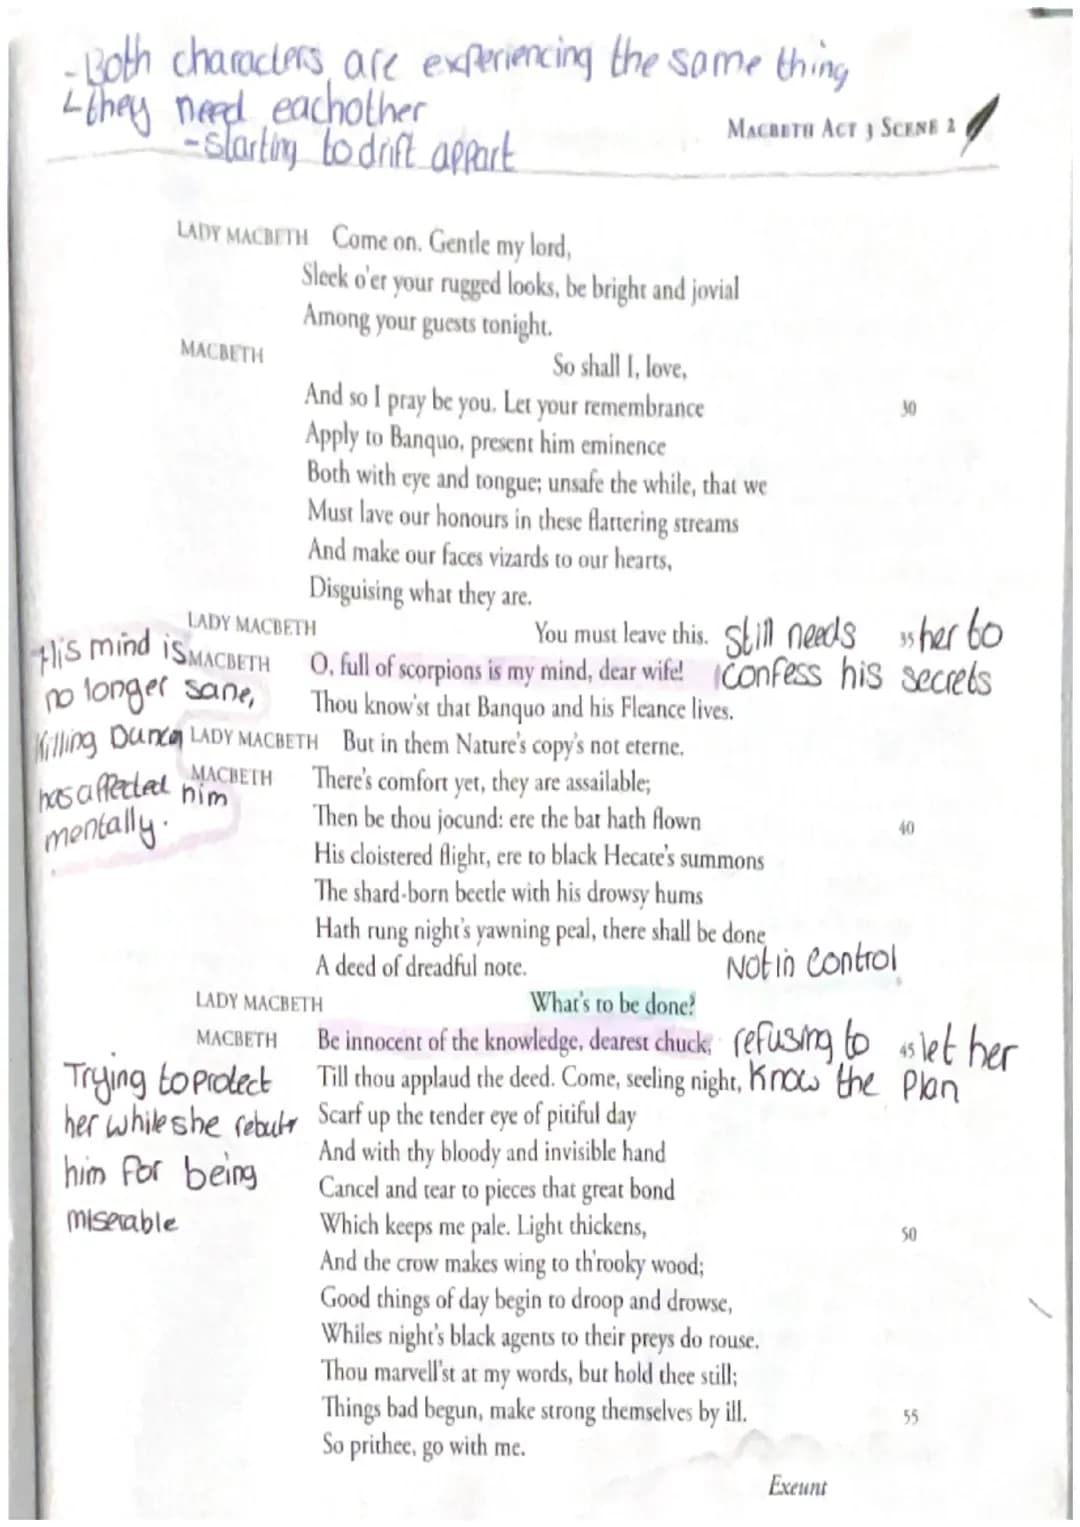 -Both characters are experiencing the same thing
↳they need eachother
-starting to drift appart
MACBETH ACT 3 SCENE 2
LADY MACBETH Come on. Gentle my lord,
Sleek o'er your rugged looks, be bright and jovial
Among your guests tonight.
MACBETH
So shall I, love,
And so I pray be you. Let your remembrance 30
Apply to Banquo, present him eminence
Both with eye and tongue; unsafe the while, that we
Must lave our honours in these flattering streams
And make our faces vizards to our hearts,
Disguising what they are.
LADY MACBETH You must leave this. 35
still needs her to
confess his secrets
MACBETH O, full of scorpions is my mind, dear wife!
Thou know'st that Banquo and his Fleance lives.
His mind is
no longer sane,
killing Duncan
has affected him
mentally.
LADY MACBETH But in them Nature's copy's not eterne.
MACBETH There's comfort yet, they are assailable;
Then be thou jocund: ere the bat hath flown 40
His cloistered flight, ere to black Hecate's summons
The shard-born beetle with his drowsy hums
Hath rung night's yawning peal, there shall be done
A deed of dreadful note.
Not in control
LADY MACBETH What's to be done?
MACBETH Be innocent of the knowledge, dearest chuck, 45
refusing to let her
know the plan
Till thou applaud the deed. Come, seeling night,
Trying to protect
her while she rebuts
him for being
miserable
Scarf up the tender eye of pitiful day
And with thy bloody and invisible hand
Cancel and tear to pieces that great bond
Which keeps me pale. Light thickens, 50
And the crow makes wing to th'rooky wood;
Good things of day begin to droop and drowse,
Whiles night's black agents to their preys do rouse.
Thou marvell'st at my words, but hold thee still;
Things bad begun, make strong themselves by ill. 55
So prithee, go with me.
Exeunt